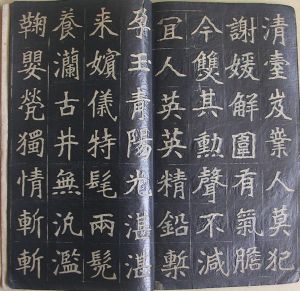 清臺岌業人莫犯
謝媛解圍有氣膽
今雙其勳聲不減
宜人英英精鉛槧
孕玉育陽光湛湛
来嬪儀特髦兩髧
養瀾古井無汎濫
鞠嬰煢獨情斬斬